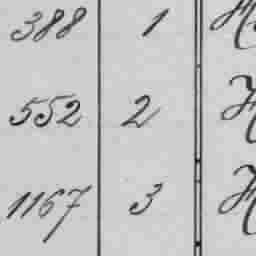 388 1
552 2
1167 3